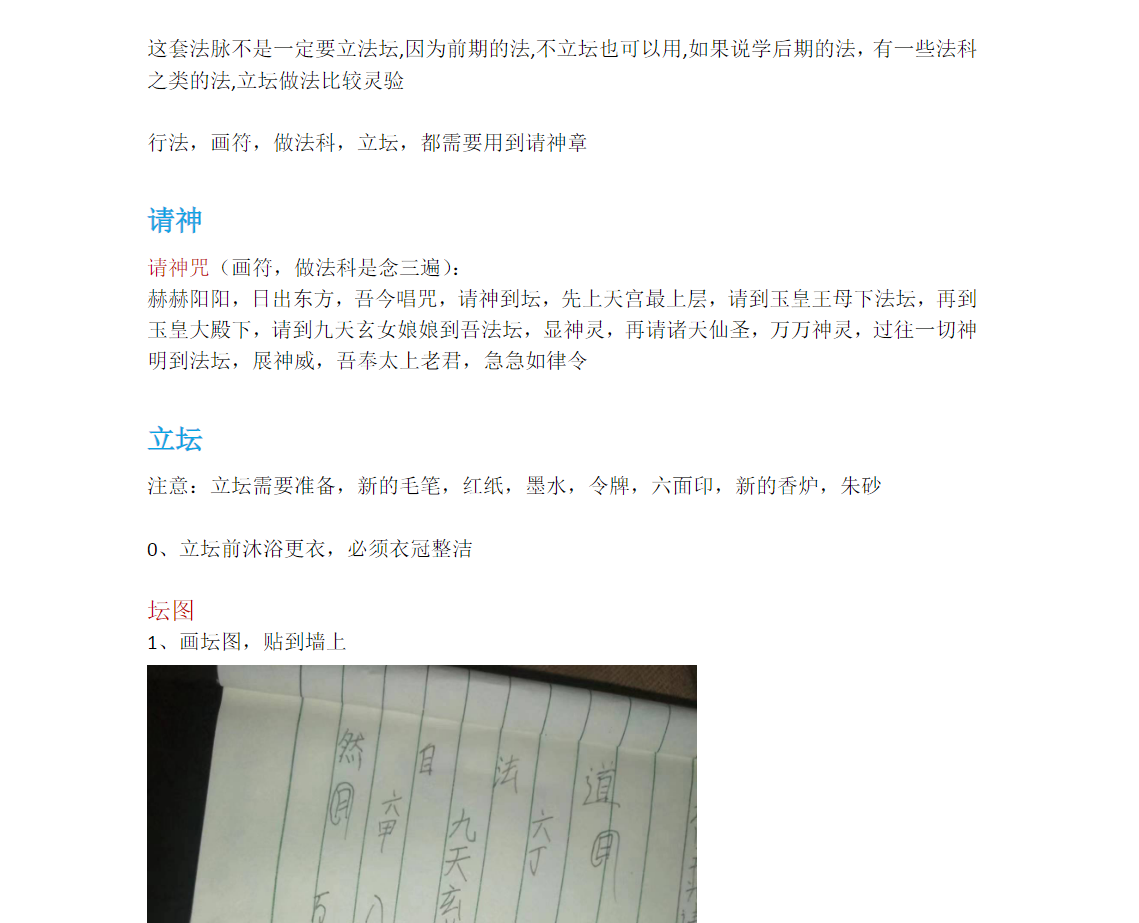 这套法脉不是一定要立法坛,因为前期的法,不立坛也可以用,如果说学后期的法，有一些法科
之类的法,立坛做法比较灵验
行法，画符，做法科，立坛，都需要用到请神章
请神
请神咒（画符，做法科是念三遍）：
赫赫阳阳，日出东方，吾今唱咒，请神到坛，先上天宫最上层，请到玉皇王母下法坛，再到
玉皇大殿下，请到九天玄女娘娘到吾法坛，显神灵，再请诸天仙圣，万万神灵，过往一切神
明到法坛，展神威，吾奉太上老君，急急如律令
立坛
注意：立坛需要准备，新的毛笔，红纸，墨水，令牌，六面印，新的香炉，朱砂
0、立坛前沐浴更衣，必须衣冠整洁
坛图
1、画坛图，贴到墙上
道
法
自
然
六丁
九天玄
六甲